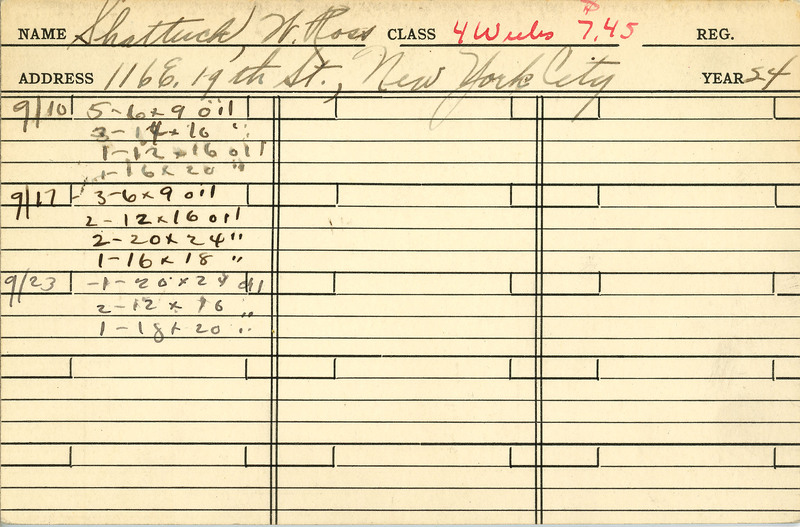 NAME Shattuck, W. Ross CLASS 4 Weeks 7.45 REG.
ADDRESS 116 E. 19th St., New York City YEAR 24
9/10 5-6x9 oil
3-14x16 "
1-12x16 oil
1-16x20 "
9/17 3-6x9 oil
2-12x16 oil
2-20x24 "
1-16x18 "
9/23 -1-20x24 oil
2-12x16 "
1-18x20 "